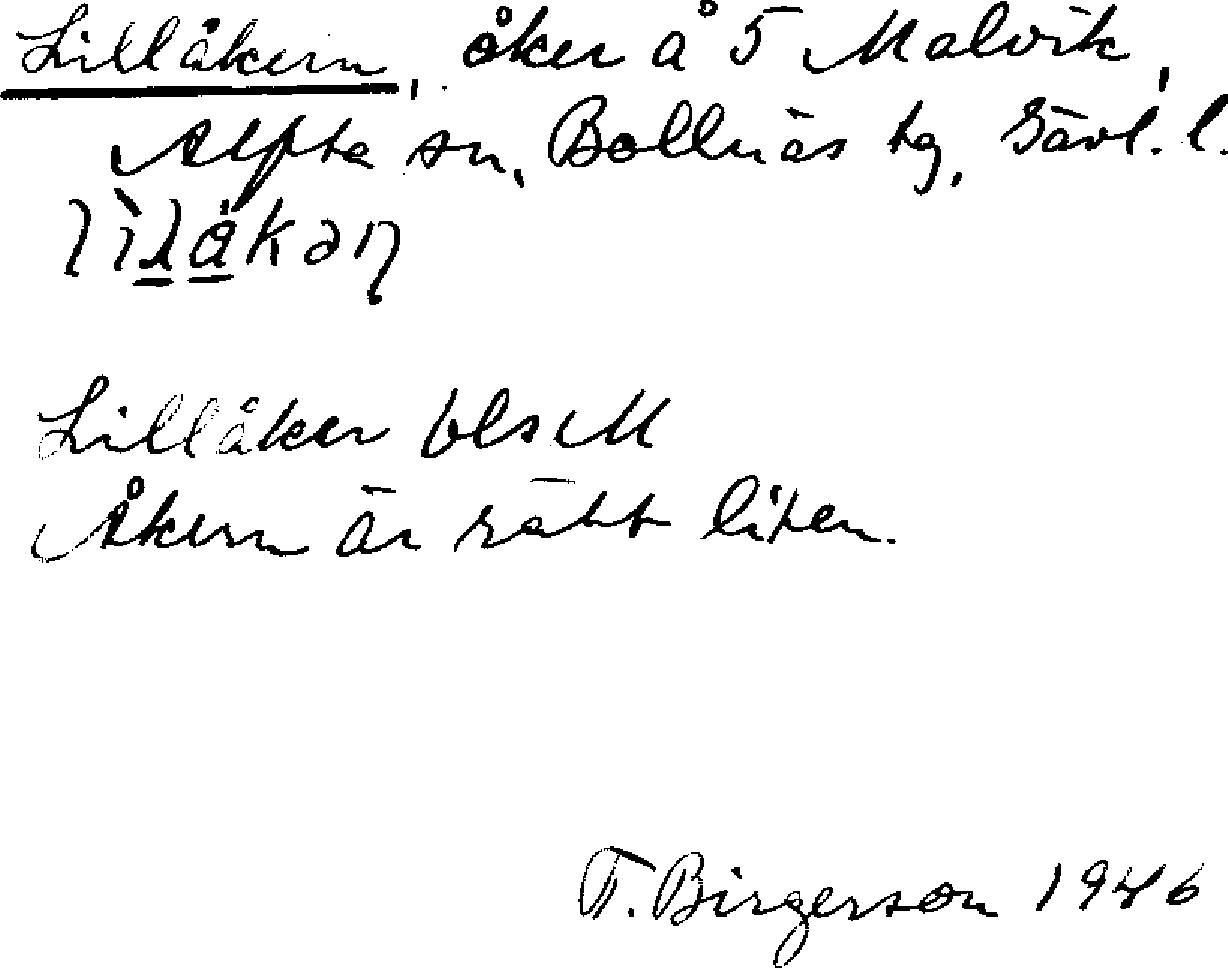 Lillåkern, åker å 5 Malvik,
Alfta sn, Bollnäs tg, Gävl. l.
Lillåker
Åkern är rätt liten.
F. Birgerson 1946